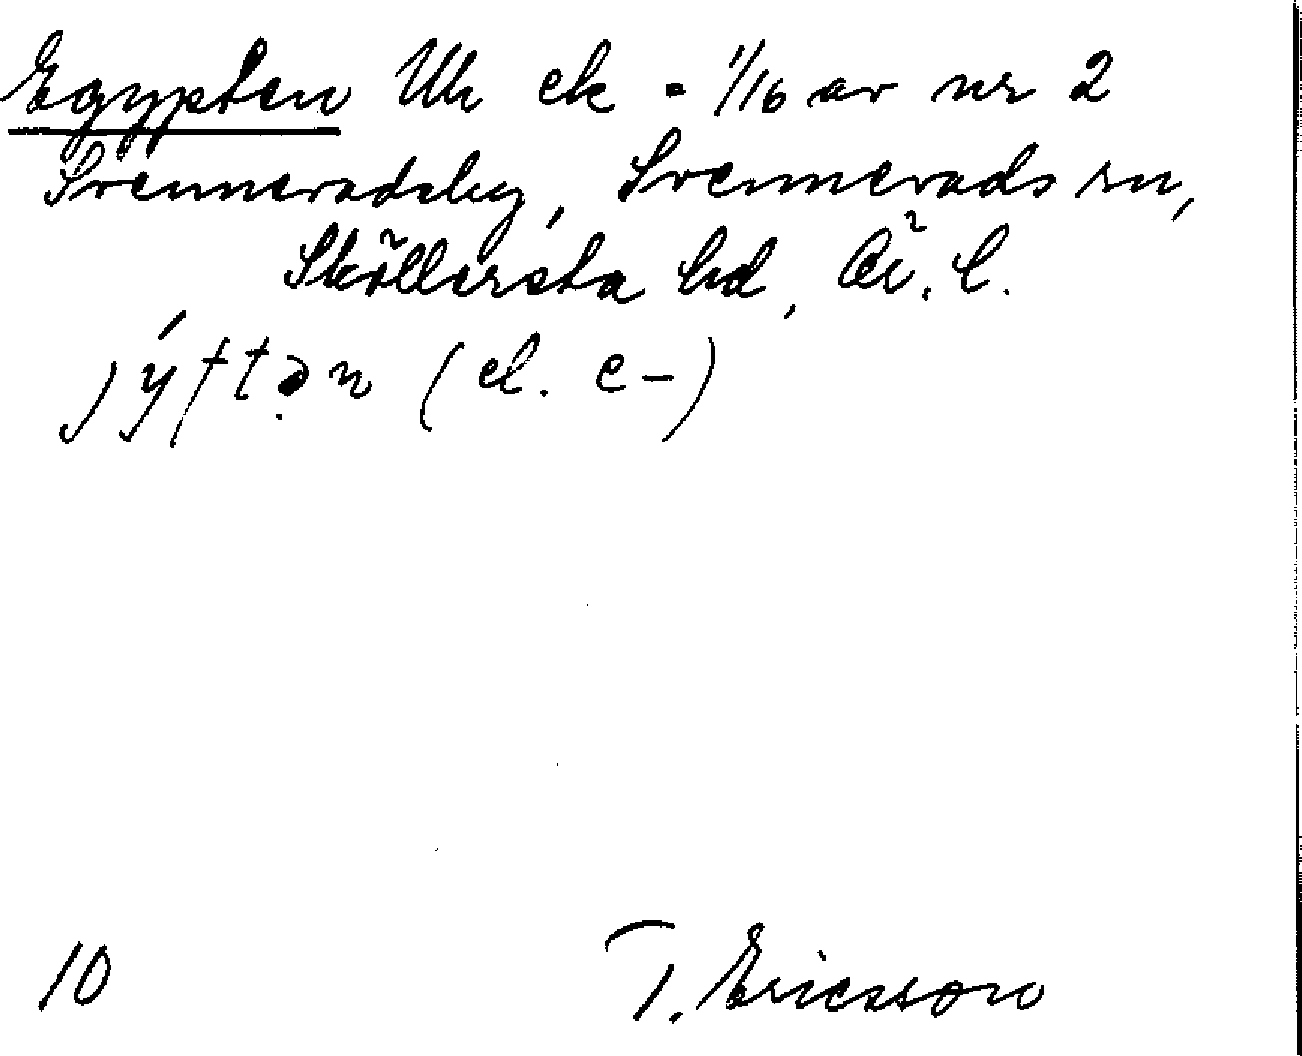 Egypten Uh ek = 1/16 av nr 2
Svenneradsby, Svennevads sn,
Sköllersta hd, Ör. l.
jýftən (el. e-)
10 T. Ericsson